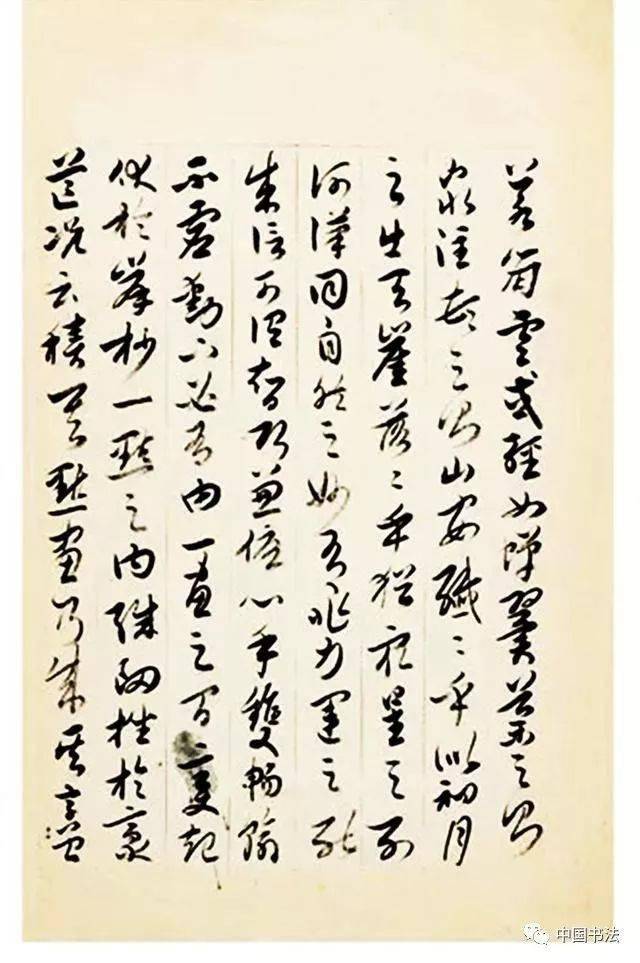 若崩雲或輕如蟬翼導之則
泉注頓之則山安纖〻乎似初月
之出天崖落〻乎猶衆星之列
河漢同自然之妙有非力運之能
成信可謂智巧兼優心手雙暢翰
不虛動下必有由一畫之間變起
伏於峯杪一點之內殊衄挫於豪
芒況云積其點畫乃成其字曾
中国书法